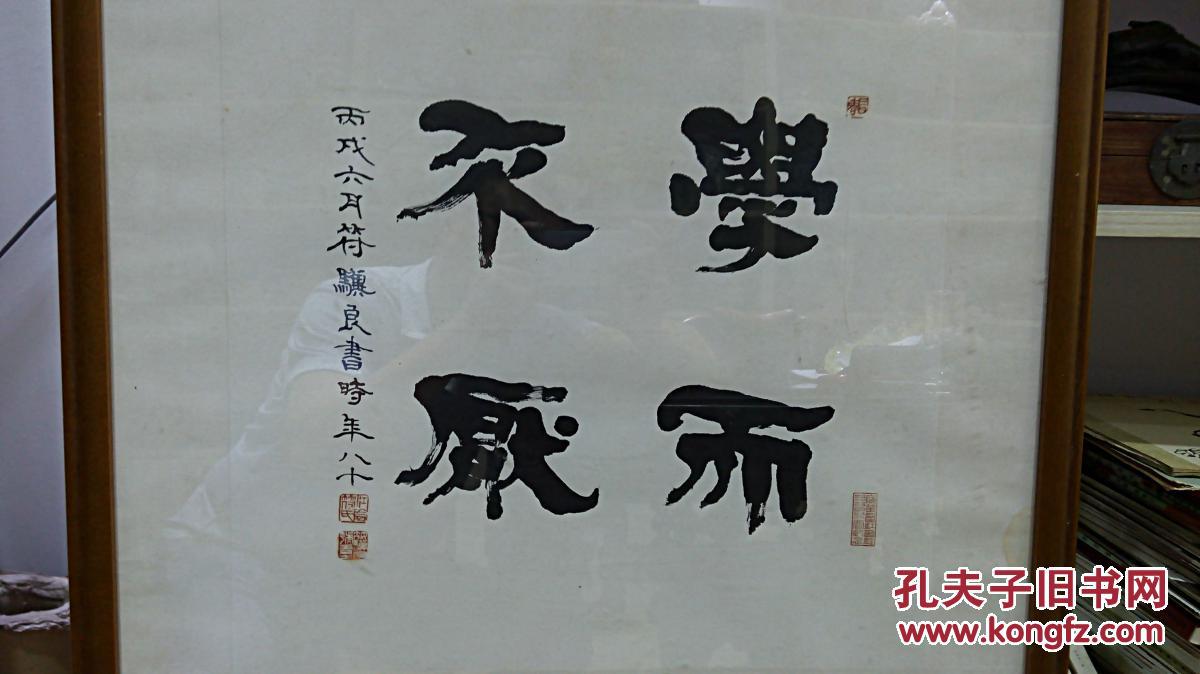 學而
不厭
丙戌六月符驥良書時年八十
孔夫子旧书网
www.kongfz.com